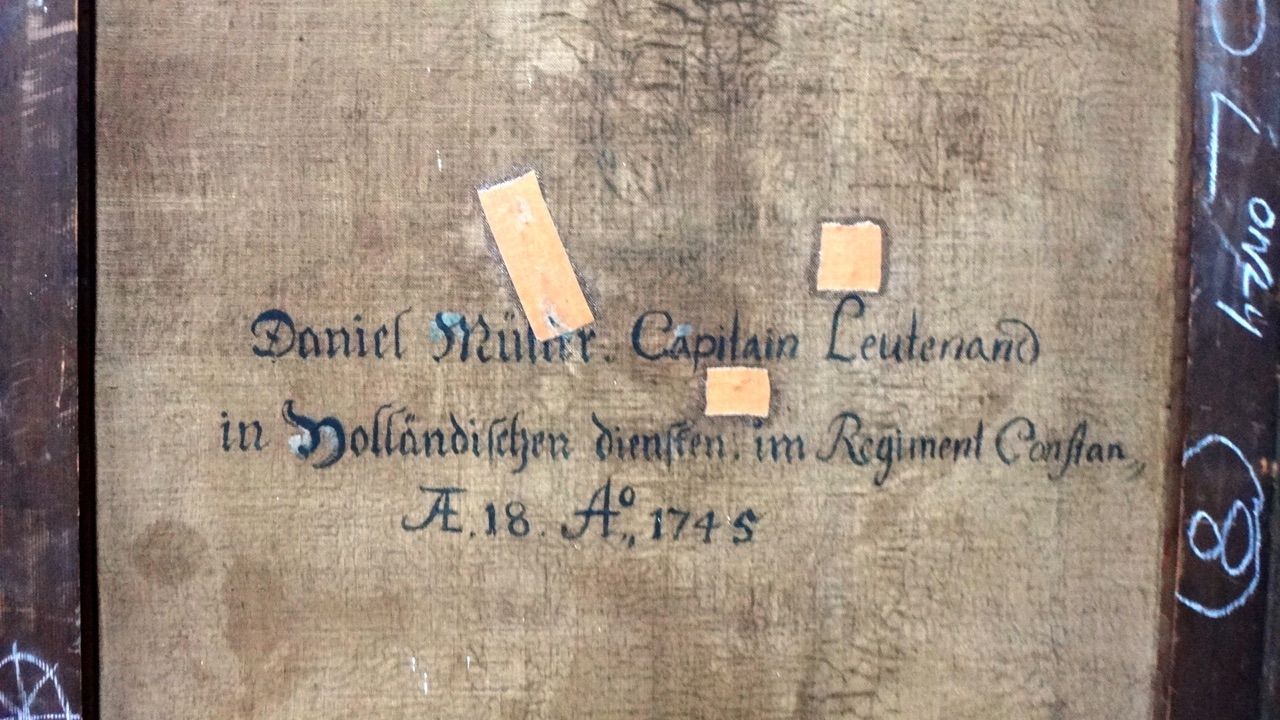 Daniel Müller. Capitain Leutenand
in Holländischen diensten. im Regiment Constan„
Æ. 18. Aº„ 1745
(8)